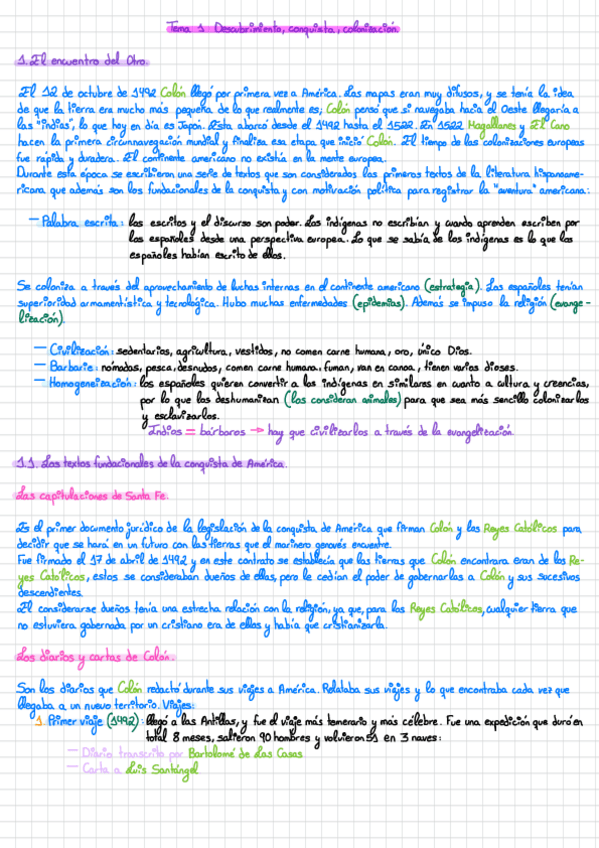 Tema 1 Descubrimiento, conquista, colonización
1. El encuentro del Otro.
El 12 de octubre de 1492 Colón llegó por primera vez a América. Las mapas eran muy difusos, y se tenía la idea
de que la tierra era mucho más pequeña de lo que realmente es; Colón pensó que si navegaba hacia el Oeste llegaría a
las "indias", lo que hoy en día es Japón. Esta abarcó desde el 1492 hasta el 1522. En 1522 Magallanes y El Cano
hacen la primera circunnavegación mundial y finaliza esa etapa que inició Colón. El tiempo de las colonizaciones europeas
fue rápida y duradera. El continente americano no existía en la mente europea.
Durante esta época se escribieron una serie de textos que son considerados los primeros textos de la literatura hispoame-
ricana que además son los fundacionales de la conquista y con motivación política para registrar la "aventura" americana:
— Palabra escrita: los escritos y el discurso son poder. Los indígenas no escribían y cuando aprenden escriben por
los españoles desde una perspectiva europea. Lo que se sabía de los indígenas es lo que los
españoles habían escrito de ellos.
Se coloniza a través del aprovechamiento de luchas internas en el continente americano (estrategia). Los españoles tenían
superioridad armamentística y tecnológica. Hubo muchas enfermedades (epidemias). Además se impuso la religión (evange-
lización).
— Civilización: sedentarios, agricultura, vestidos, no comen carne humana, oro, único Dios.
— Barbarie: nómadas, pesca, desnudos, comen carne humana, fuman, van en canoa, tienen varios dioses.
— Homogeneización: los españoles quieren convertir a los indígenas en similares en cuanto a cultura y creencias,
por lo que los deshumanizan (los consideran animales) para que sea más sencillo colonizarlos
y esclavizarlos.
Indios = bárbaros → hay que civilizarlos a través de la evangelización.
1.1. Los textos fundacionales de la conquista de América.
Las capitulaciones de Santa Fe.
Es el primer documento jurídico de la legislación de la conquista de América que firman Colón y los Reyes Católicos para
decidir que se hará en un futuro con las tierras que el marinero genovés encuentre.
Fue firmado el 17 de abril de 1492 y en este contrato se establecía que las tierras que Colón encontrara eran de los Re-
yes Católicos, estos se consideraban dueños de ellas, pero le cedían el poder de gobernarlas a Colón y sus sucesivos
descendientes.
El considerarse dueños tenía una estrecha relación con la religión, ya que, para los Reyes Católicos, cualquier tierra que
no estuviera gobernada por un cristiano era de ellos y había que cristianizarla.
Los diarios y cartas de Colón.
Son los diarios que Colón redactó durante sus viajes a América. Relataba sus viajes y lo que encontraba cada vez que
llegaba a un nuevo territorio. Viajes:
1. Primer viaje (1492): llegó a las Antillas, y fue el viaje más temerario y más célebre. Fue una expedición que duró en
total 8 meses, salieron 90 hombres y volvieron 51 en 3 naves:
— Diario transcrito por Bartolomé de Las Casas
— Carta a Luis Santángel